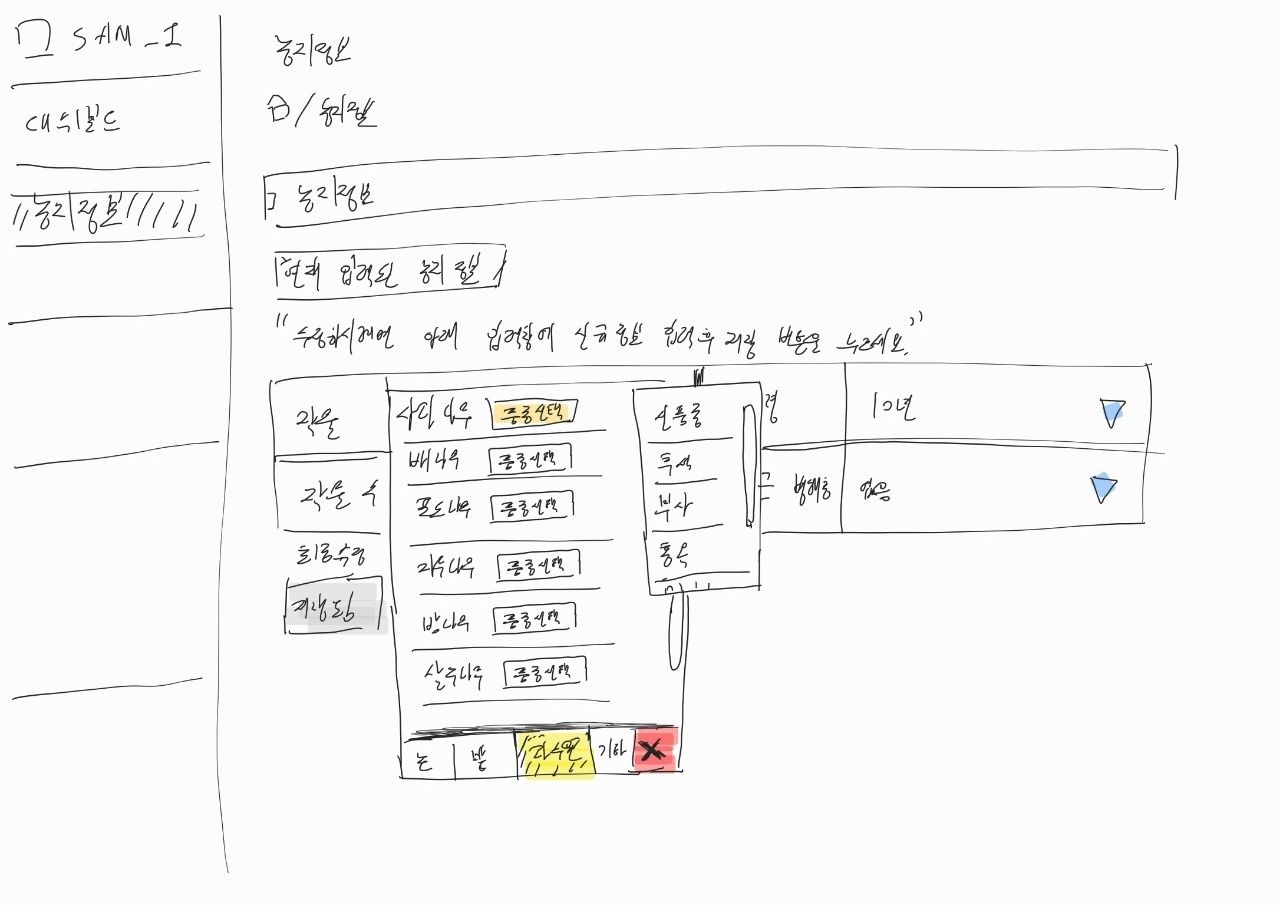 SAM_I
대쉬보드
농지정보
농지정보
/ 농지정보
농지정보
현재 입력된 농지 정보
"수정하시려면 아래 입력창에 신규정보 입력 후 저장 버튼을 누르세요."
작물
작물 수
최종수정
저장됨
사과 나무 품종선택
배나무 품종선택
포도나무 품종선택
자두나무 품종선택
밤나무 품종선택
살구나무 품종선택
논
밭
과수원
기타
X
신품종
추석
부사
홍옥
령
10년
병해충
없음